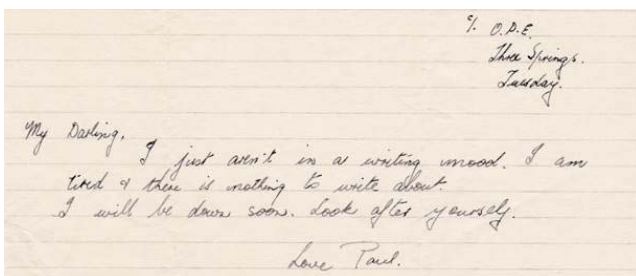 ℅ O.P.E.
Three Springs.
Tuesday.
My Darling,
I just aren't in a writing mood. I am
tired & there is nothing to write about.
I will be down soon. Look after yourself.
Love Paul.